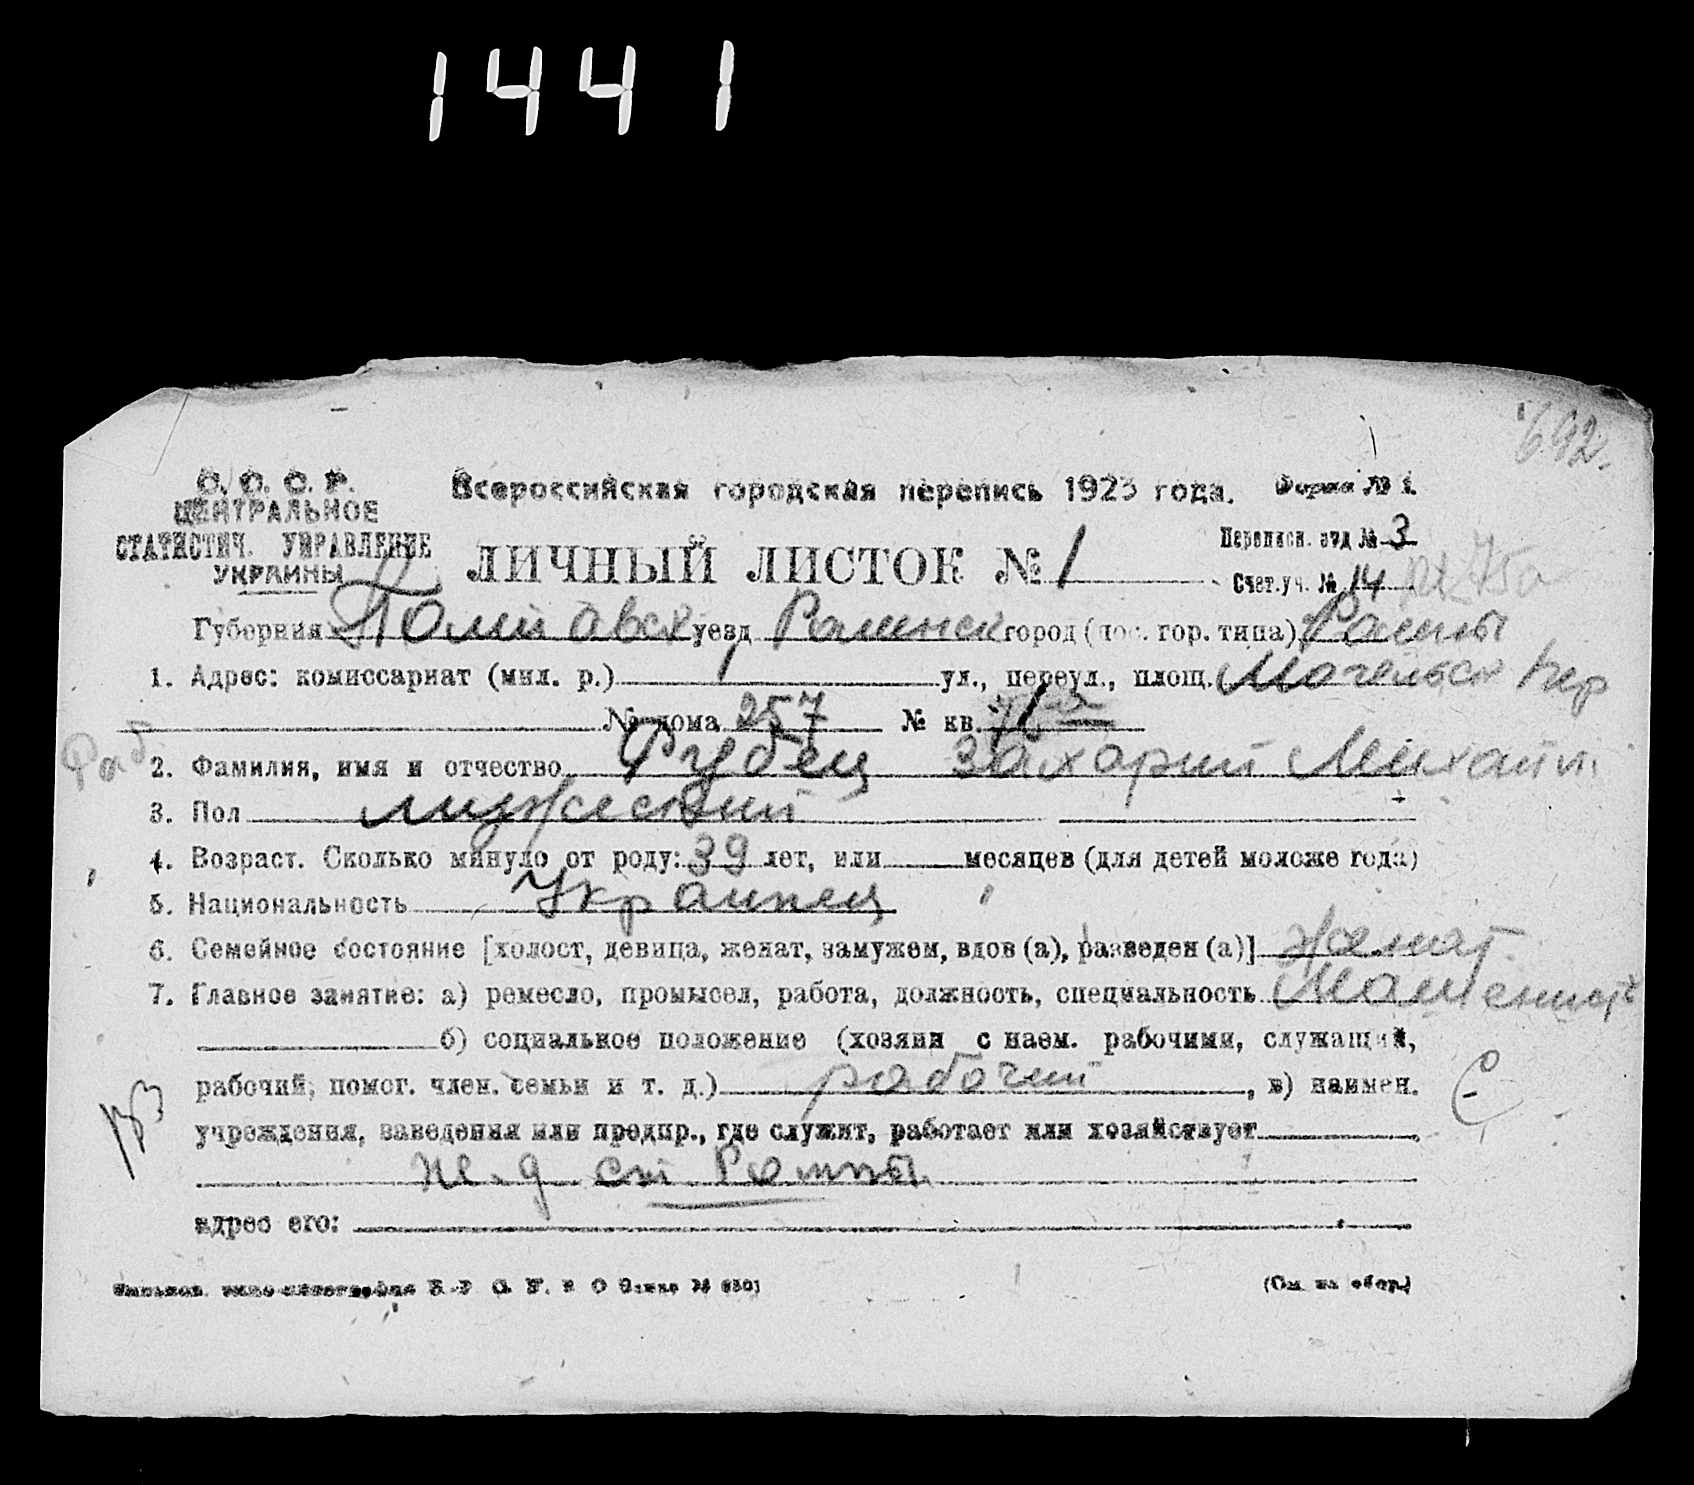 1441
692.
С. С. С. Р. Всероссийская городская перепись 1923 года. Форма № 1.
ЦЕНТРАЛЬНОЕ
СТАТИСТИЧ. УПРАВЛЕНИЕ ЛИЧНЫЙ ЛИСТОК № 1 Переписн. отд № 3
УКРАИНЫ Счет. уч. № 14
Губерния Полтавск уезд Роменск город (пос. гор. типа) Ромны
1. Адрес: комиссариат (мил. р.) 1 ул., переул., площ.
№ дома 257 № кв.
2. Фамилия, имя и отчество Рубец Захарий Михайл.
3. Пол мужеский
4. Возраст. Сколько минуло от роду: 39 лет, или месяцев (для детей моложе года)
5. Национальность Украинец
6. Семейное состояние [холост, девица, женат, замужем, вдов (а), разведен (а)] женат.
7. Главное занятие: а) ремесло, промысел, работа, должность, специальность
б) социальное положение (хозяин с наем. рабочими, служащий,
рабочий, помог. член. семьи и т. д.) рабочий, в) наимен.
учреждения, заведения или предпр., где служит, работает или хозяйствует
ж. д ст. Ромны
адрес его:
(См. на обор.)